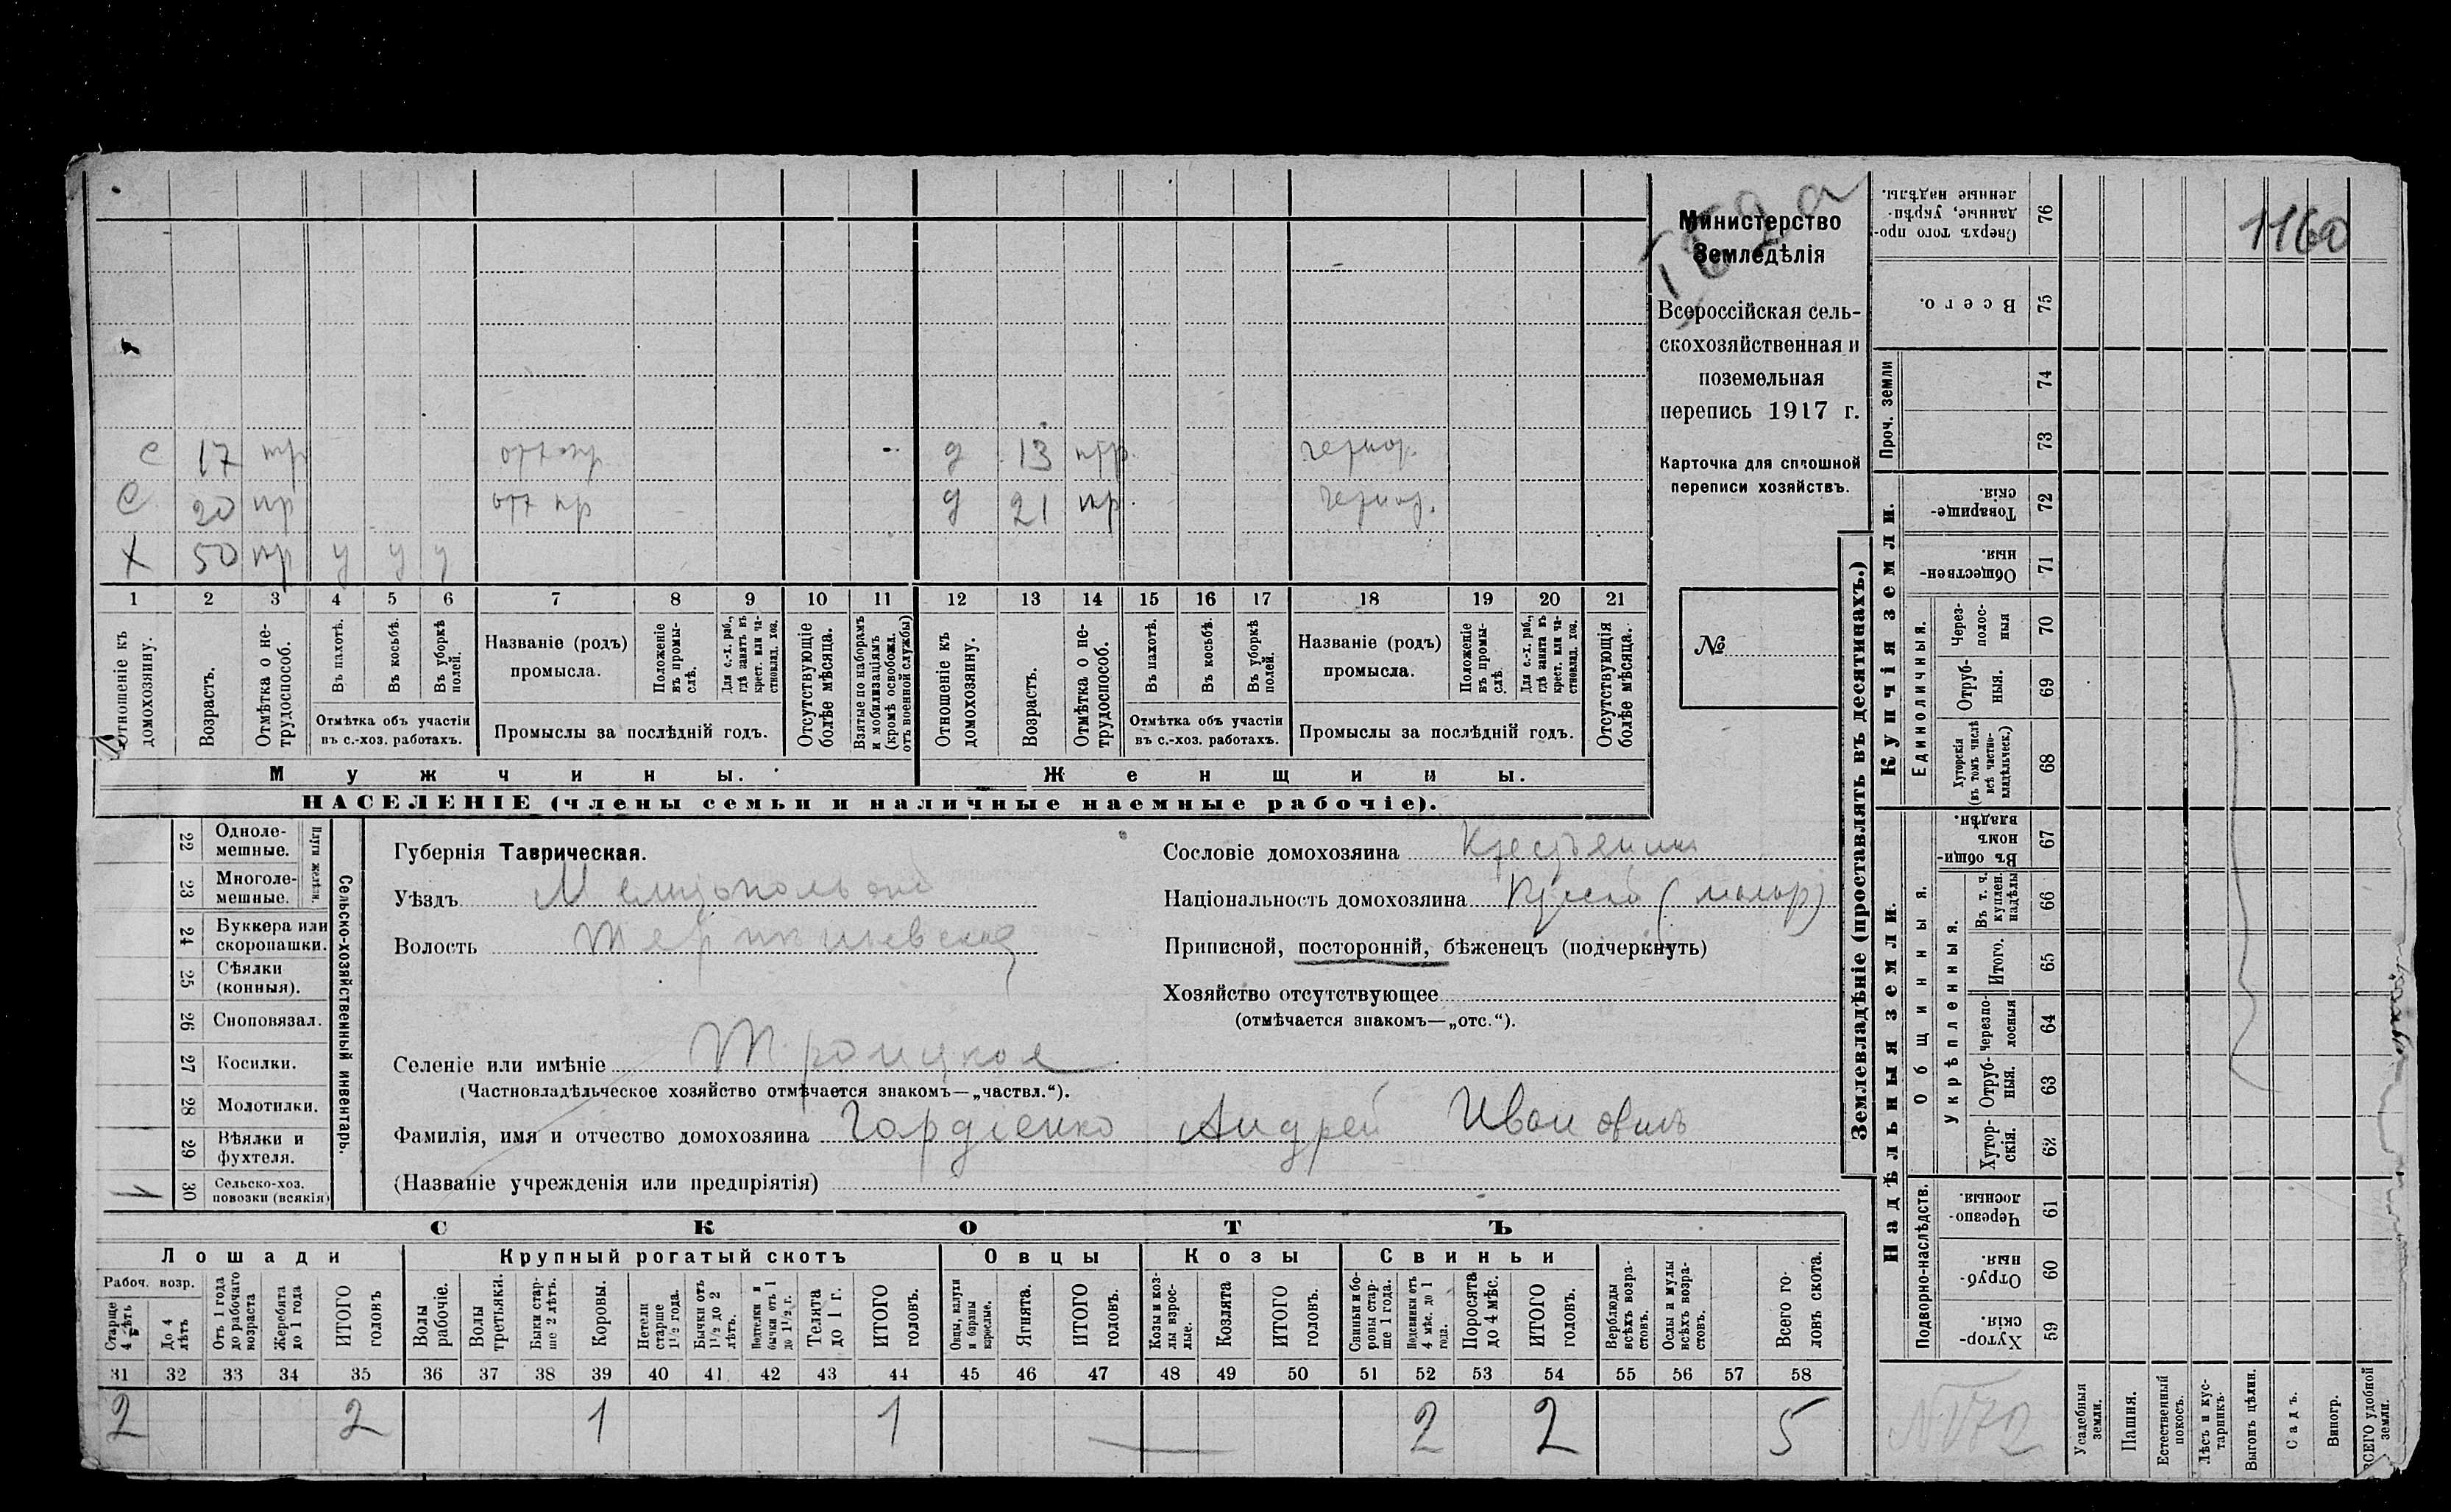 Министерство
Земледѣлія
Всероссійская сель-
скохозяйственная и
поземельная
перепись 1917 г.
Карточка для сплошной
переписи хозяйствъ.
№
1160
с 17 отх пр д 13 чернор.
с 20 отх пр д 21 чернор.
х 50 у у у
1 2 3 4 5 6 7 8 9 10 11 12 13 14 15 16 17 18 19 20 21
Отношеніе къ домохозяину.
Возрастъ.
Отмѣтка о не-трудоспособ.
Въ пахотѣ.
Въ косьбѣ.
Въ уборкѣ полей.
Отмѣтка объ участіи
въ с.-хоз. работахъ.
Названіе (родъ)
промысла.
Положеніе въ промы-слѣ.
Для с.-х. раб., гдѣ занятъ въ крест. или ча-стновлад. хоз.
Промыслы за послѣдній годъ.
Отсутствующіе болѣе мѣсяца.
Взятые по наборамъ и мобилизаціямъ (кромѣ освобожд. отъ военной службы)
Отношеніе къ домохозяину.
Возрастъ.
Отмѣтка о не-трудоспособ.
Въ пахотѣ.
Въ косьбѣ.
Въ уборкѣ полей.
Отмѣтка объ участіи
въ с.-хоз. работахъ.
Названіе (родъ)
промысла.
Положеніе въ промы-слѣ.
Для с.-х. раб., гдѣ занята въ крест. или ча-стновлад. хоз.
Промыслы за послѣдній годъ.
Отсутствующія болѣе мѣсяца.
Мужчины.
Женщины.
НАСЕЛЕНІЕ (члены семьи и наличные наемные рабочіе).
Сельско-хозяйственный инвентарь.
Плуги желѣзн.
22 Одноле-мешные.
23 Многоле-мешные.
24 Буккера или скоропашки.
25 Сѣялки (конныя).
26 Сноповязал.
27 Косилки.
28 Молотилки.
29 Вѣялки и фухтеля.
30 Сельско-хоз. повозки (всякія) 1
Губернія Таврическая.
Уѣздъ Мелитопольскій
Волость
Селеніе или имѣніе Троицкое
(Частновладѣльческое хозяйство отмѣчается знакомъ—„частвл.“).
Фамилія, имя и отчество домохозяина Гордіенко Андрей Ивановичъ
(Названіе учрежденія или предпріятія)
Сословіе домохозяина Крестьянинъ
Національность домохозяина Русскій (малор)
Приписной, посторонній, бѣженецъ (подчеркнуть)
Хозяйство отсутствующее
(отмѣчается знакомъ—„отс.“).
СКОТЪ
Лошади
Крупный рогатый скотъ
Овцы
Козы
Свиньи
Рабоч. возр.
Старше 4 лѣтъ
До 4 лѣтъ
Отъ 1 года до рабочаго возраста
Жеребята до 1 года
ИТОГО головъ
Волы рабочіе.
Волы третьяки.
Быки стар-ше 2 лѣтъ.
Коровы.
Нетели старше 1½ года.
Бычки отъ 1½ до 2 лѣтъ.
бычки отъ 1 до 1½ г.
Телята до 1 г.
ИТОГО головъ.
Овцы, валухи и бараны взрослые.
Ягнята.
ИТОГО головъ.
Козы и коз-лы взрос-лые.
Козлята
ИТОГО головъ.
Свиньи и бо-ровы стар-ше 1 года.
Подсвинки отъ 4 мѣс. до 1 года.
Поросята до 4 мѣс.
ИТОГО головъ.
Верблюды всѣхъ возра-стовъ.
Ослы и мулы всѣхъ возра-стовъ.
Всего го-ловъ скота.
31 32 33 34 35 36 37 38 39 40 41 42 43 44 45 46 47 48 49 50 51 52 53 54 55 56 57 58
2 2 1 1 2 2 5
Землевладѣніе (проставлять въ десятинахъ.)
Надѣльныя земли.
Купчія земли.
Проч. земли
Подворно-наслѣдств.
Общинныя.
Укрѣпленныя.
Единоличныя.
Сверхъ того про-данные, укрѣп-ленные надѣлы. 76
Всего. 75
74
73
Товарище-скія. 72
Обществен-ныя. 71
Через-полос-ныя 70
Отруб-ныя. 69
Хуторскія (въ томъ числѣ всѣ частно-владѣльческ.) 68
Въ общин-номъ владѣн. 67
Въ т. ч. куплен. надѣлы 66
Итого. 65
Черезпо-лосныя 64
Отруб-ныя. 63
Хутор-скія. 62
Черезпо-лосныя. 61
Отруб-ныя. 60
Хутор-скія. 59
Усадебныя земли.
Пашня.
Естественный покосъ.
Лѣсъ и кус-тарникъ.
Выгонъ цѣлин.
Садъ.
Виногр.
ВСЕГО удобной земли.
N 172